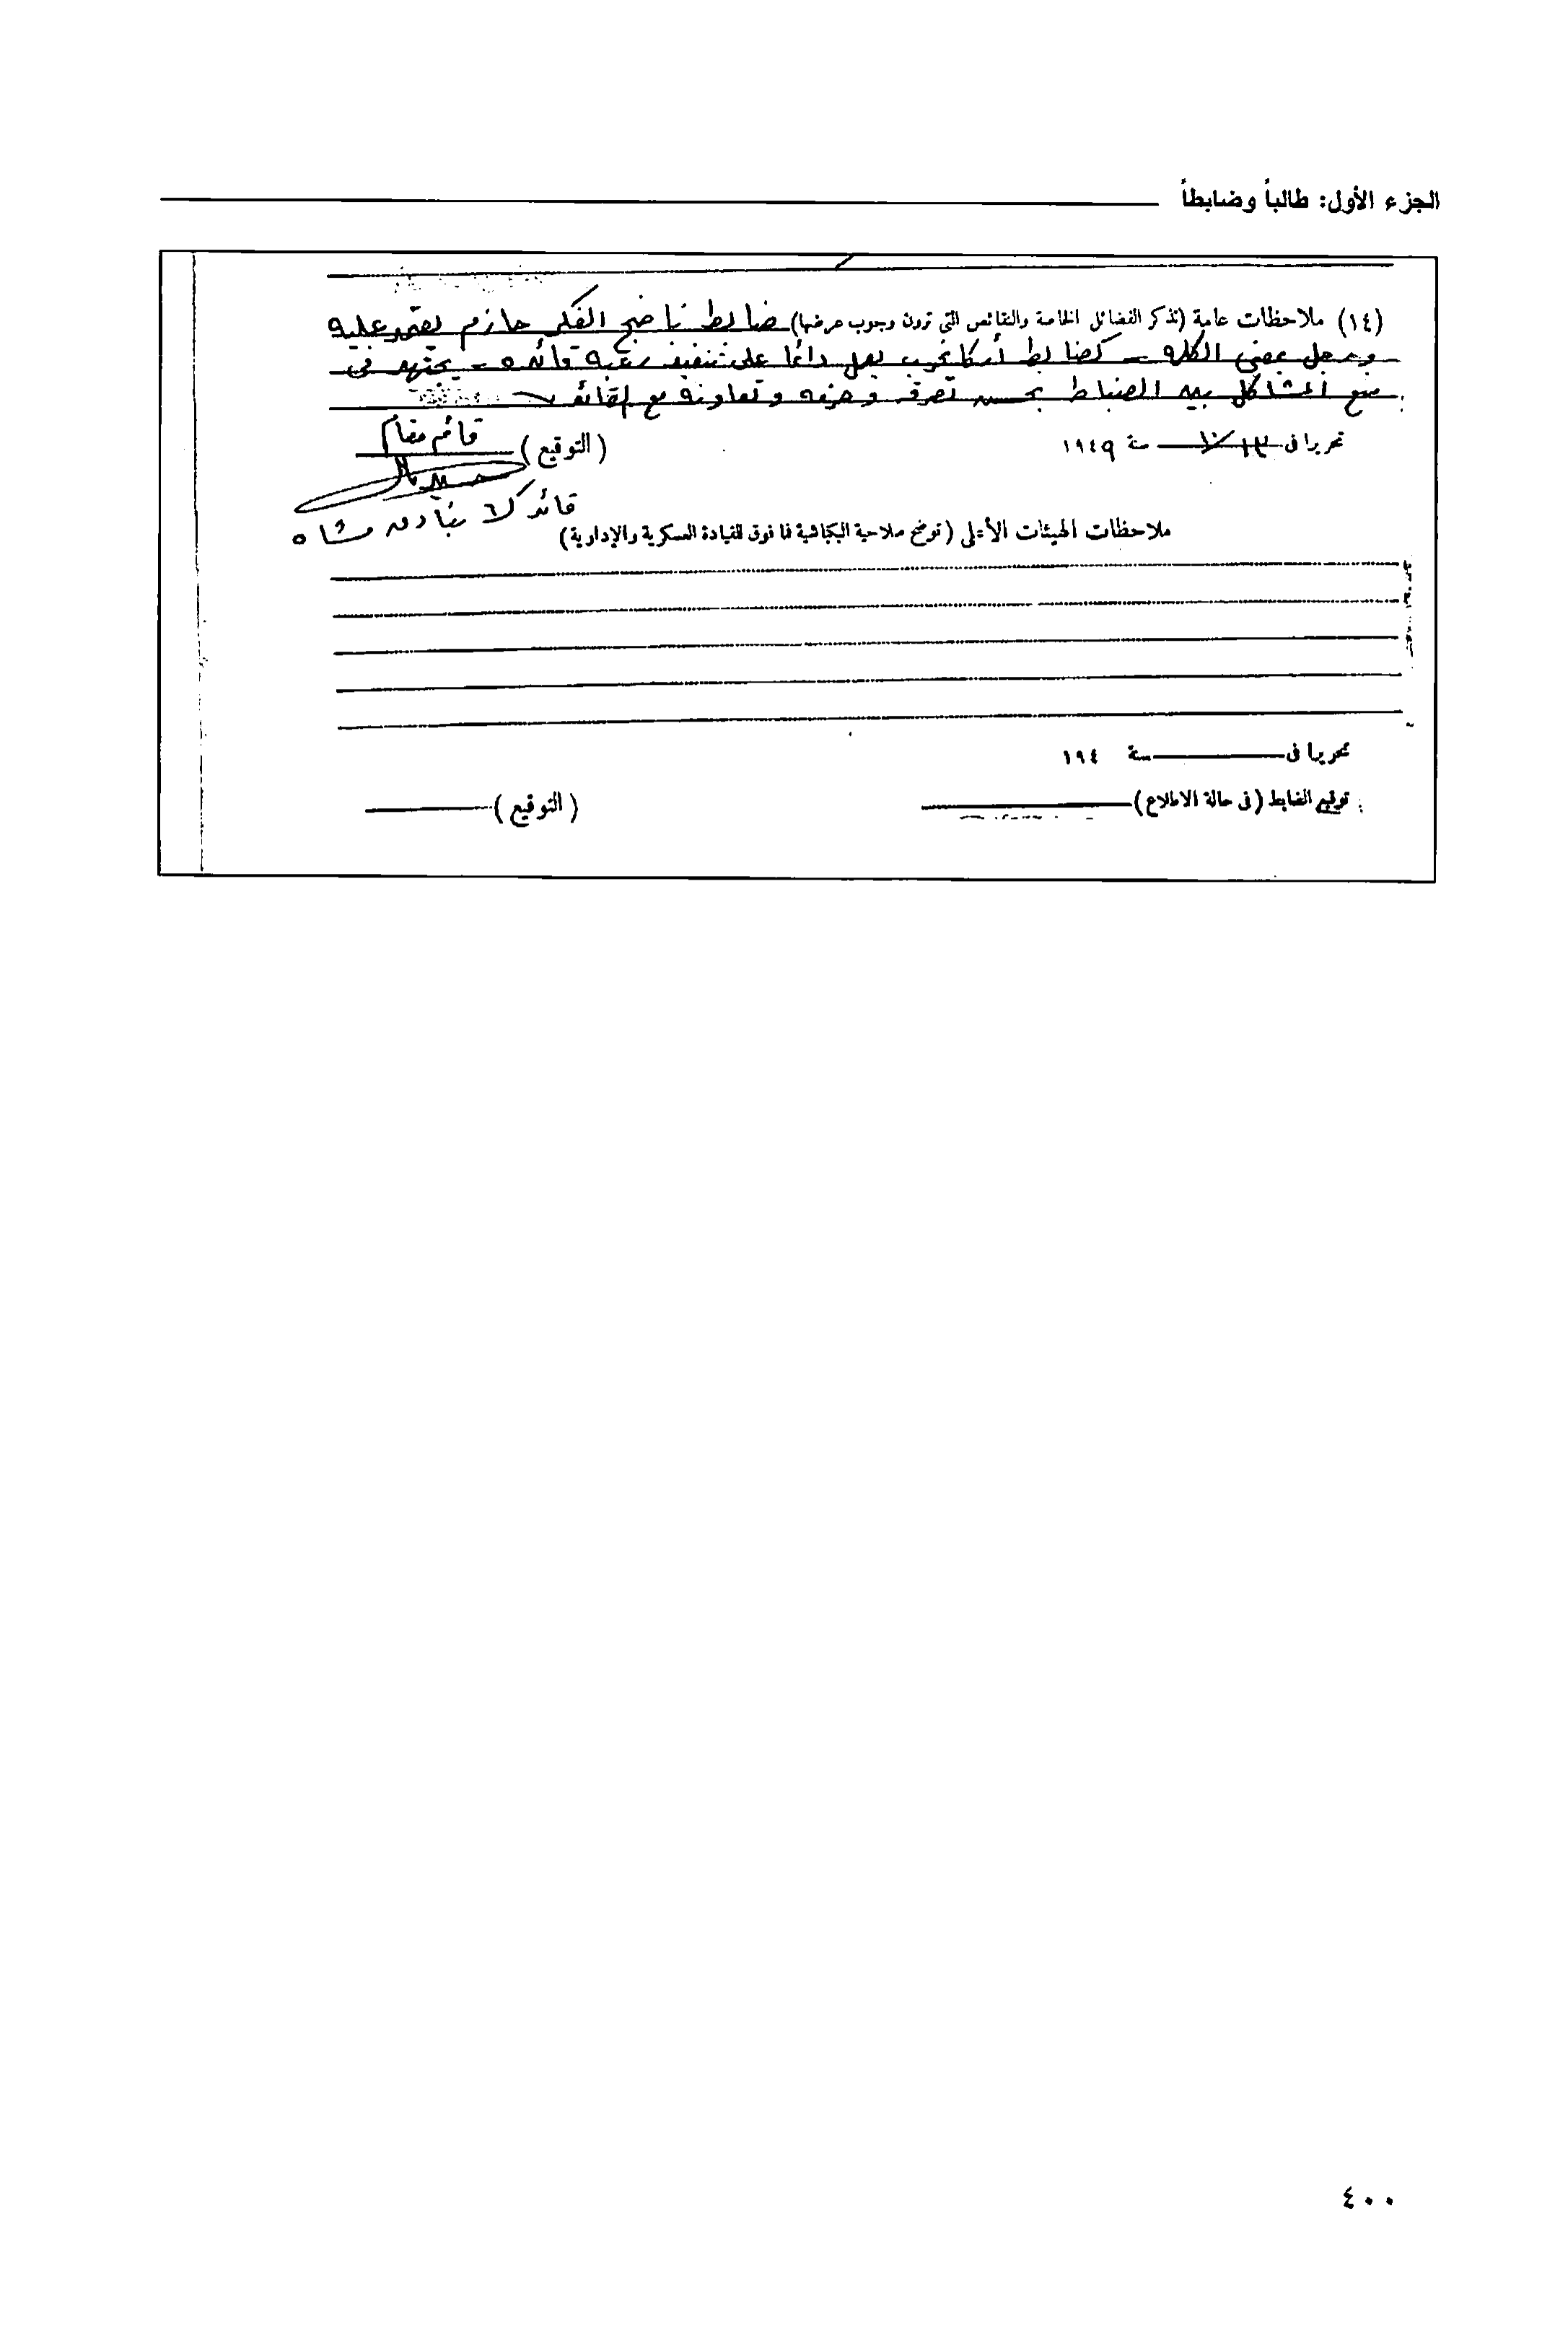 الجزء الأول: طالباً وضابطاً
(١٤) ملاحظات عامة (تذكر الفضائل الخاصة والنقائص التى ترون وجوب عرضها) ضابط ناضج الفكر حازم يعتمد عليه
ورجل بمعنى الكلمة - كضابط أركانحرب يعمل دائما على تنفيذ رغبة قائده - يجتهد فى
منع المشاكل بين الضباط بحسن تصرفه وحزمه وتعاونه مع
تحريرا فى ١٠/١٣ سنة ١٩٤٩
(التوقيع) قائم مقام
قائد ك٦ بنادق مشاه
ملاحظات الهيئات الأعلى (توضح صلاحية البكباشية فما فوق للقيادة العسكرية والإدارية)
تحريرا فى سنة ١٩٤
توقيع الضابط (فى حالة الاطلاع) (التوقيع)
٤٠٠